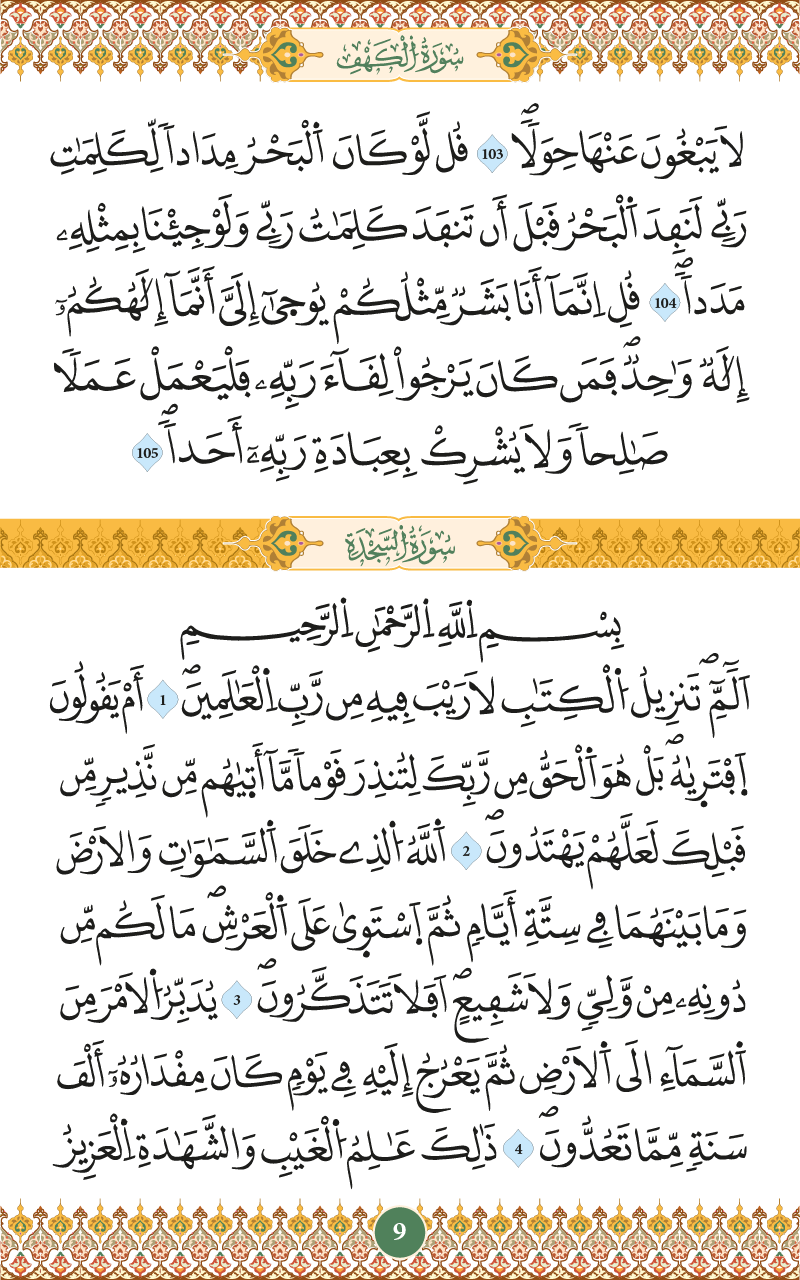 سُورَةُ اُ۬لْكَهْفِ
لَا يَبْغُونَ عَنْهَا حِوَلاٗۖ 103 قُل لَّوْ كَانَ اَ۬لْبَحْرُ مِدَاداٗ لِّكَلِمَٰتِ
رَبِّے لَنَفِدَ اَ۬لْبَحْرُ قَبْلَ أَن تَنفَدَ كَلِمَٰتُ رَبِّے وَلَوْ جِئْنَا بِمِثْلِهِۦ
مَدَداٗۖ 104 قُلِ اِنَّمَآ أَنَا بَشَرٞ مِّثْلُكُمْ يُوح۪يٰٓ إِلَيَّ أَنَّمَآ إِلَٰهُكُمُۥٓ
إِلَٰهٞ وَٰحِدٞۖ فَمَن كَانَ يَرْجُواْ لِقَآءَ رَبِّهِۦ فَلْيَعْمَلْ عَمَلاٗ
صَٰلِحاٗ وَلَا يُشْرِكْ بِعِبَادَةِ رَبِّهِۦٓ أَحَداٗۖ 105
سُورَةُ اُ۬لسَّجْدَةِ
بِسْمِ اِ۬للَّهِ اِ۬لرَّحْمَٰنِ اِ۬لرَّحِيمِ
أَلَٓمِّٓۖ تَنزِيلُ اُ۬لْكِتَٰبِ لَا رَيْبَ فِيهِ مِن رَّبِّ اِ۬لْعَٰلَمِينَۖ 1 أَمْ يَقُولُونَ
اَ۪فْتَر۪يٰهُۖ بَلْ هُوَ اَ۬لْحَقُّ مِن رَّبِّكَ لِتُنذِرَ قَوْماٗ مَّآ أَت۪يٰهُم مِّن نَّذِيرٖ مِّن
قَبْلِكَ لَعَلَّهُمْ يَهْتَدُونَۖ 2 اَ۬للَّهُ اُ۬لذِے خَلَقَ اَ۬لسَّمَٰوَٰتِ وَالَارْضَ
وَمَا بَيْنَهُمَا فِے سِتَّةِ أَيَّامٖ ثُمَّ اَ۪سْتَو۪يٰ عَلَي اَ۬لْعَرْشِۖ مَا لَكُم مِّن
دُونِهِۦ مِنْ وَّلِيّٖ وَلَا شَفِيعٍۖ اَفَلَا تَتَذَكَّرُونَۖ 3 يُدَبِّرُ اُ۬لَامْرَ مِنَ
اَ۬لسَّمَآءِ اِلَي اَ۬لَارْضِ ثُمَّ يَعْرُجُ إِلَيْهِ فِے يَوْمٖ كَانَ مِقْدَارُهُۥٓ أَلْفَ
سَنَةٖ مِّمَّا تَعُدُّونَۖ 4 ذَٰلِكَ عَٰلِمُ اُ۬لْغَيْبِ وَالشَّهَٰدَةِ اِ۬لْعَزِيزُ
9